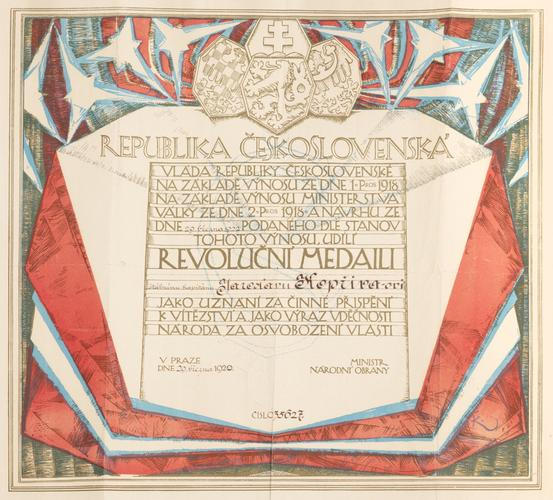 REPUBLIKA ČESKOSLOVENSKÁ
VLÁDA REPUBLIKY ČESKOSLOVENSKÉ
NA ZÁKLADĚ VÝNOSU ZE DNE 1. PROS 1918
NA ZÁKLADĚ VÝNOSU MINISTERSTVA
VÁLKY ZE DNE 2. PROS 1918 A NÁVRHU ZE
DNE PODANÉHO DLE STANOV
TOHOTO VÝNOSU, UDÍLÍ
REVOLUČNÍ MEDAILI
štábnímu kapitánu Jaroslavu
JAKO UZNÁNÍ ZA ČINNÉ PŘISPĚNÍ
K VÍTĚZSTVÍ A JAKO VÝRAZ VDĚČNOSTI
NÁRODA ZA OSVOBOZENÍ VLASTI
V PRAZE
DNE 29. června 1920.
MINISTR
NÁRODNÍ OBRANY
ČÍSLO 35627